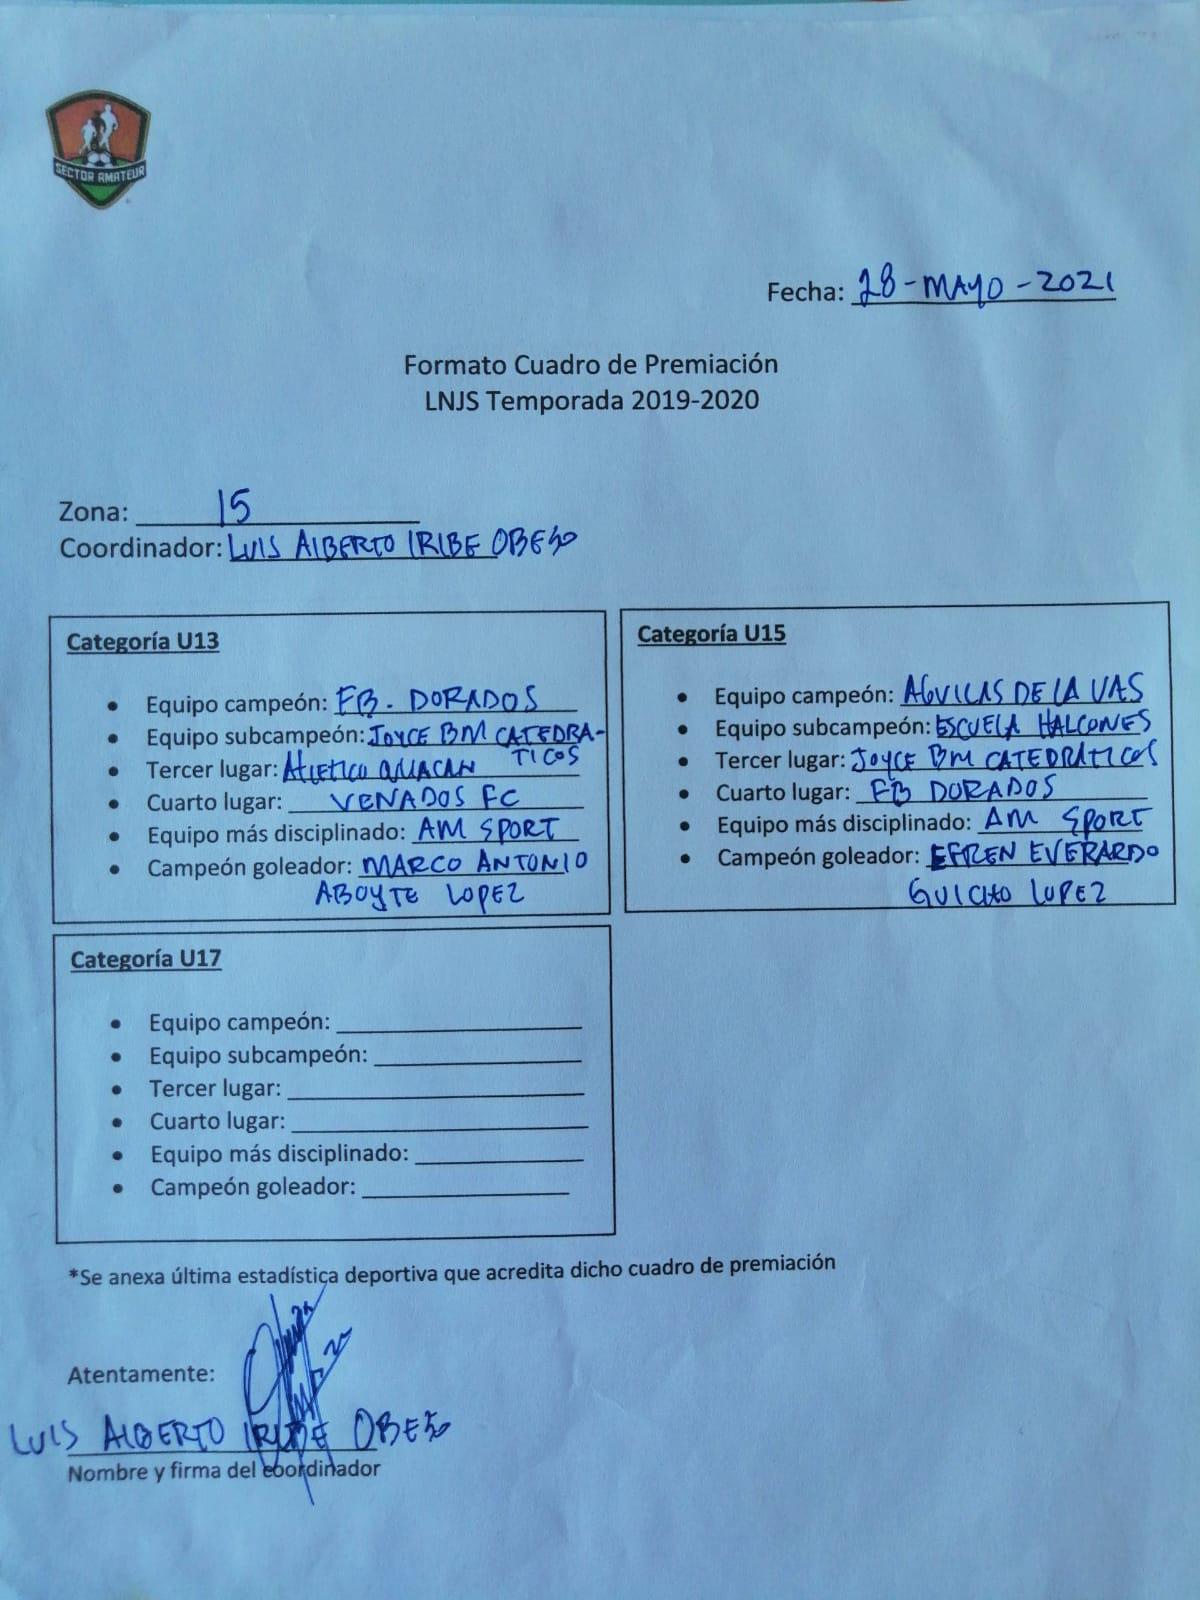 SECTOR AMATEUR
Fecha: 28-MAYO-2021
Formato Cuadro de Premiación
LNJS Temporada 2019-2020
Zona: 15
Coordinador: LUIS ALBERTO IRIBE OBESO
Categoría U13
• Equipo campeón: FB. DORADOS
• Equipo subcampeón: JOYCE BM CATEDRA-
TICOS
• Tercer lugar: ATLETICO
• Cuarto lugar: VENADOS FC
• Equipo más disciplinado: AM SPORT
• Campeón goleador: MARCO ANTONIO
ABOYTE LOPEZ
Categoría U15
• Equipo campeón: AGUILAS DE LA UAS
• Equipo subcampeón: ESCUELA HALCONES
• Tercer lugar: JOYCE BM CATEDRATICOS
• Cuarto lugar: FB DORADOS
• Equipo más disciplinado: AM SPORT
• Campeón goleador: EFREN EVERARDO
GUICHO LOPEZ
Categoría U17
• Equipo campeón:
• Equipo subcampeón:
• Tercer lugar:
• Cuarto lugar:
• Equipo más disciplinado:
• Campeón goleador:
*Se anexa última estadística deportiva que acredita dicho cuadro de premiación
Atentamente:
LUIS ALBERTO IRIBE OBESO
Nombre y firma del coordinador